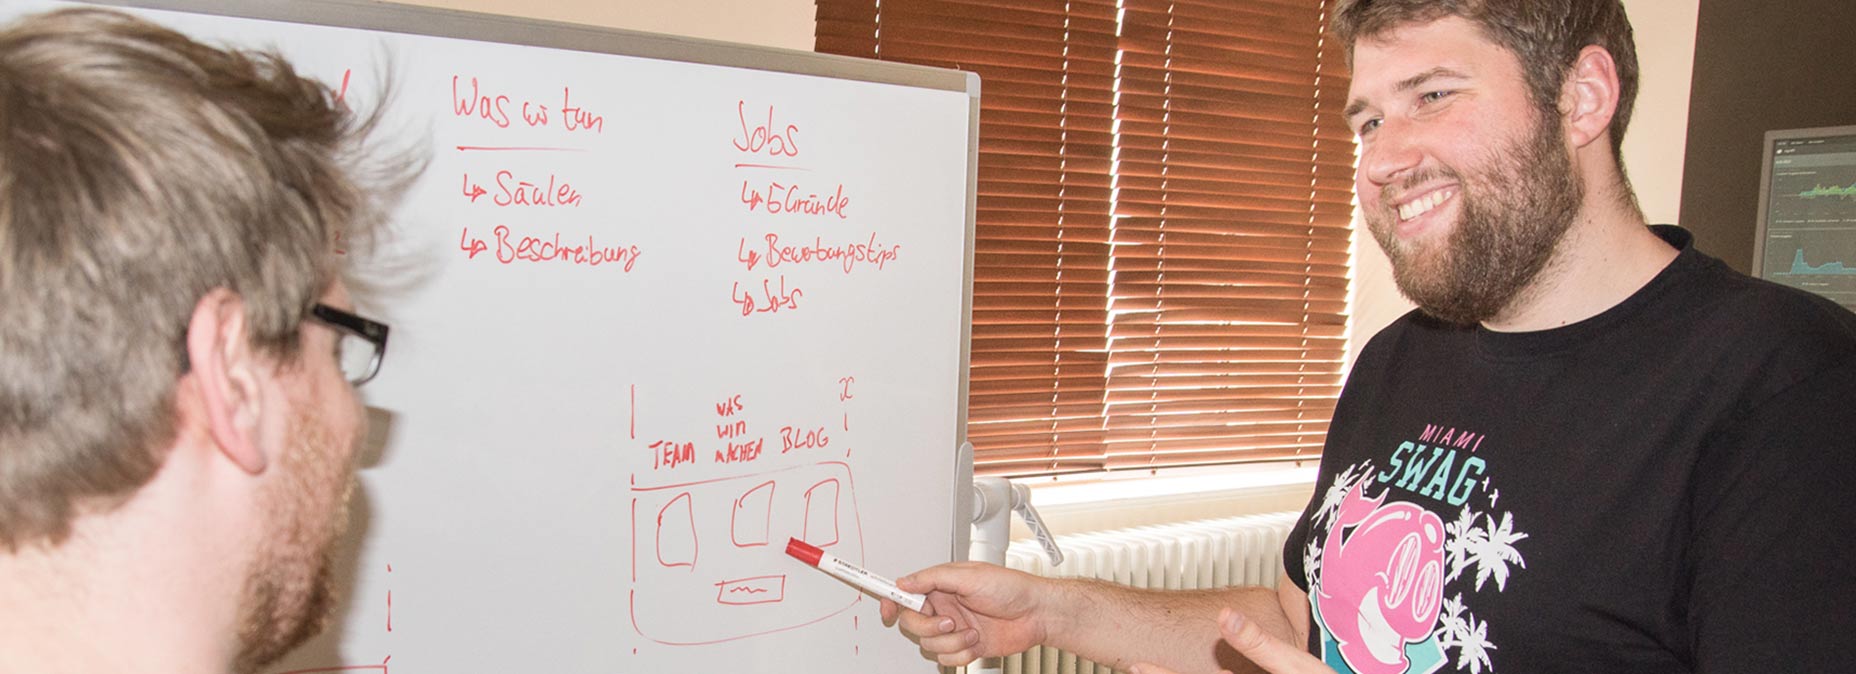 Was wir tun
↳ Säulen
↳ Beschreibung
Jobs
↳ 5 Gründe
↳ Bewerbungstips
↳ Jobs
x
TEAM
WAS
WIR
MACHEN
BLOG
STAEDTLER
MIAMI
SWAG